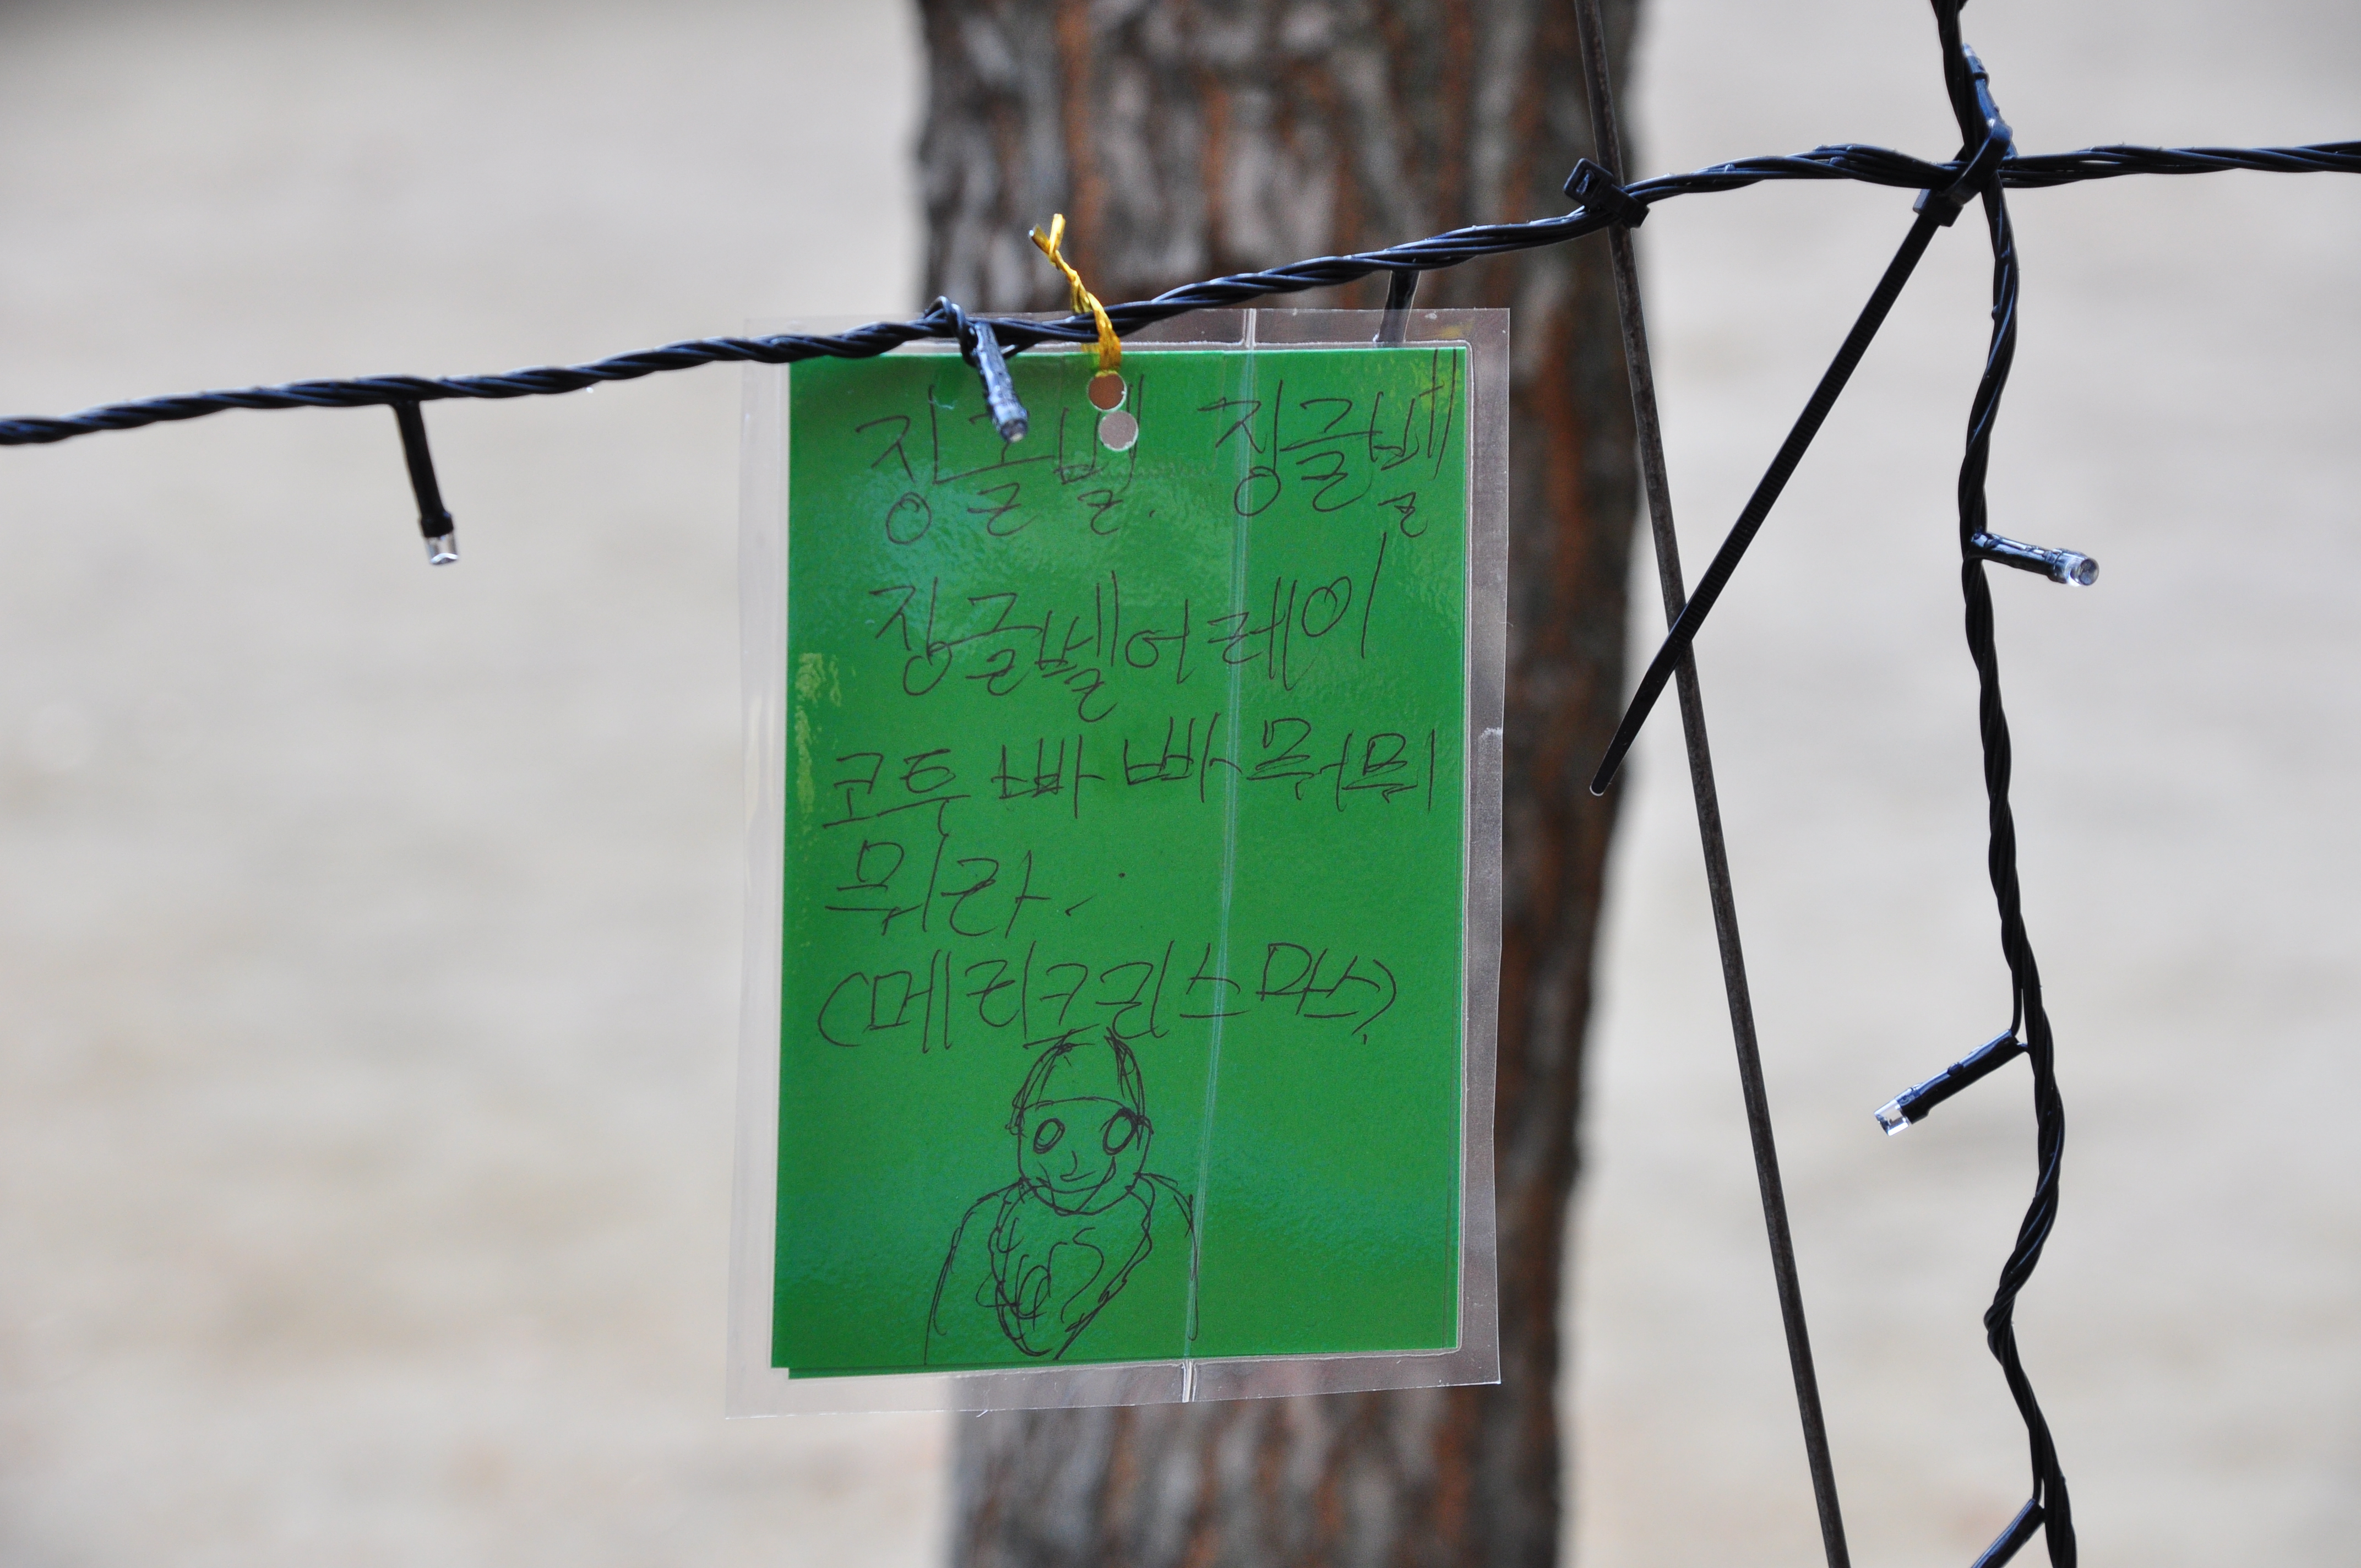 징글벨. 징글벨
징글벨어레이
코투 빠빠뭐미
뭐라.
(메리크리스마스)